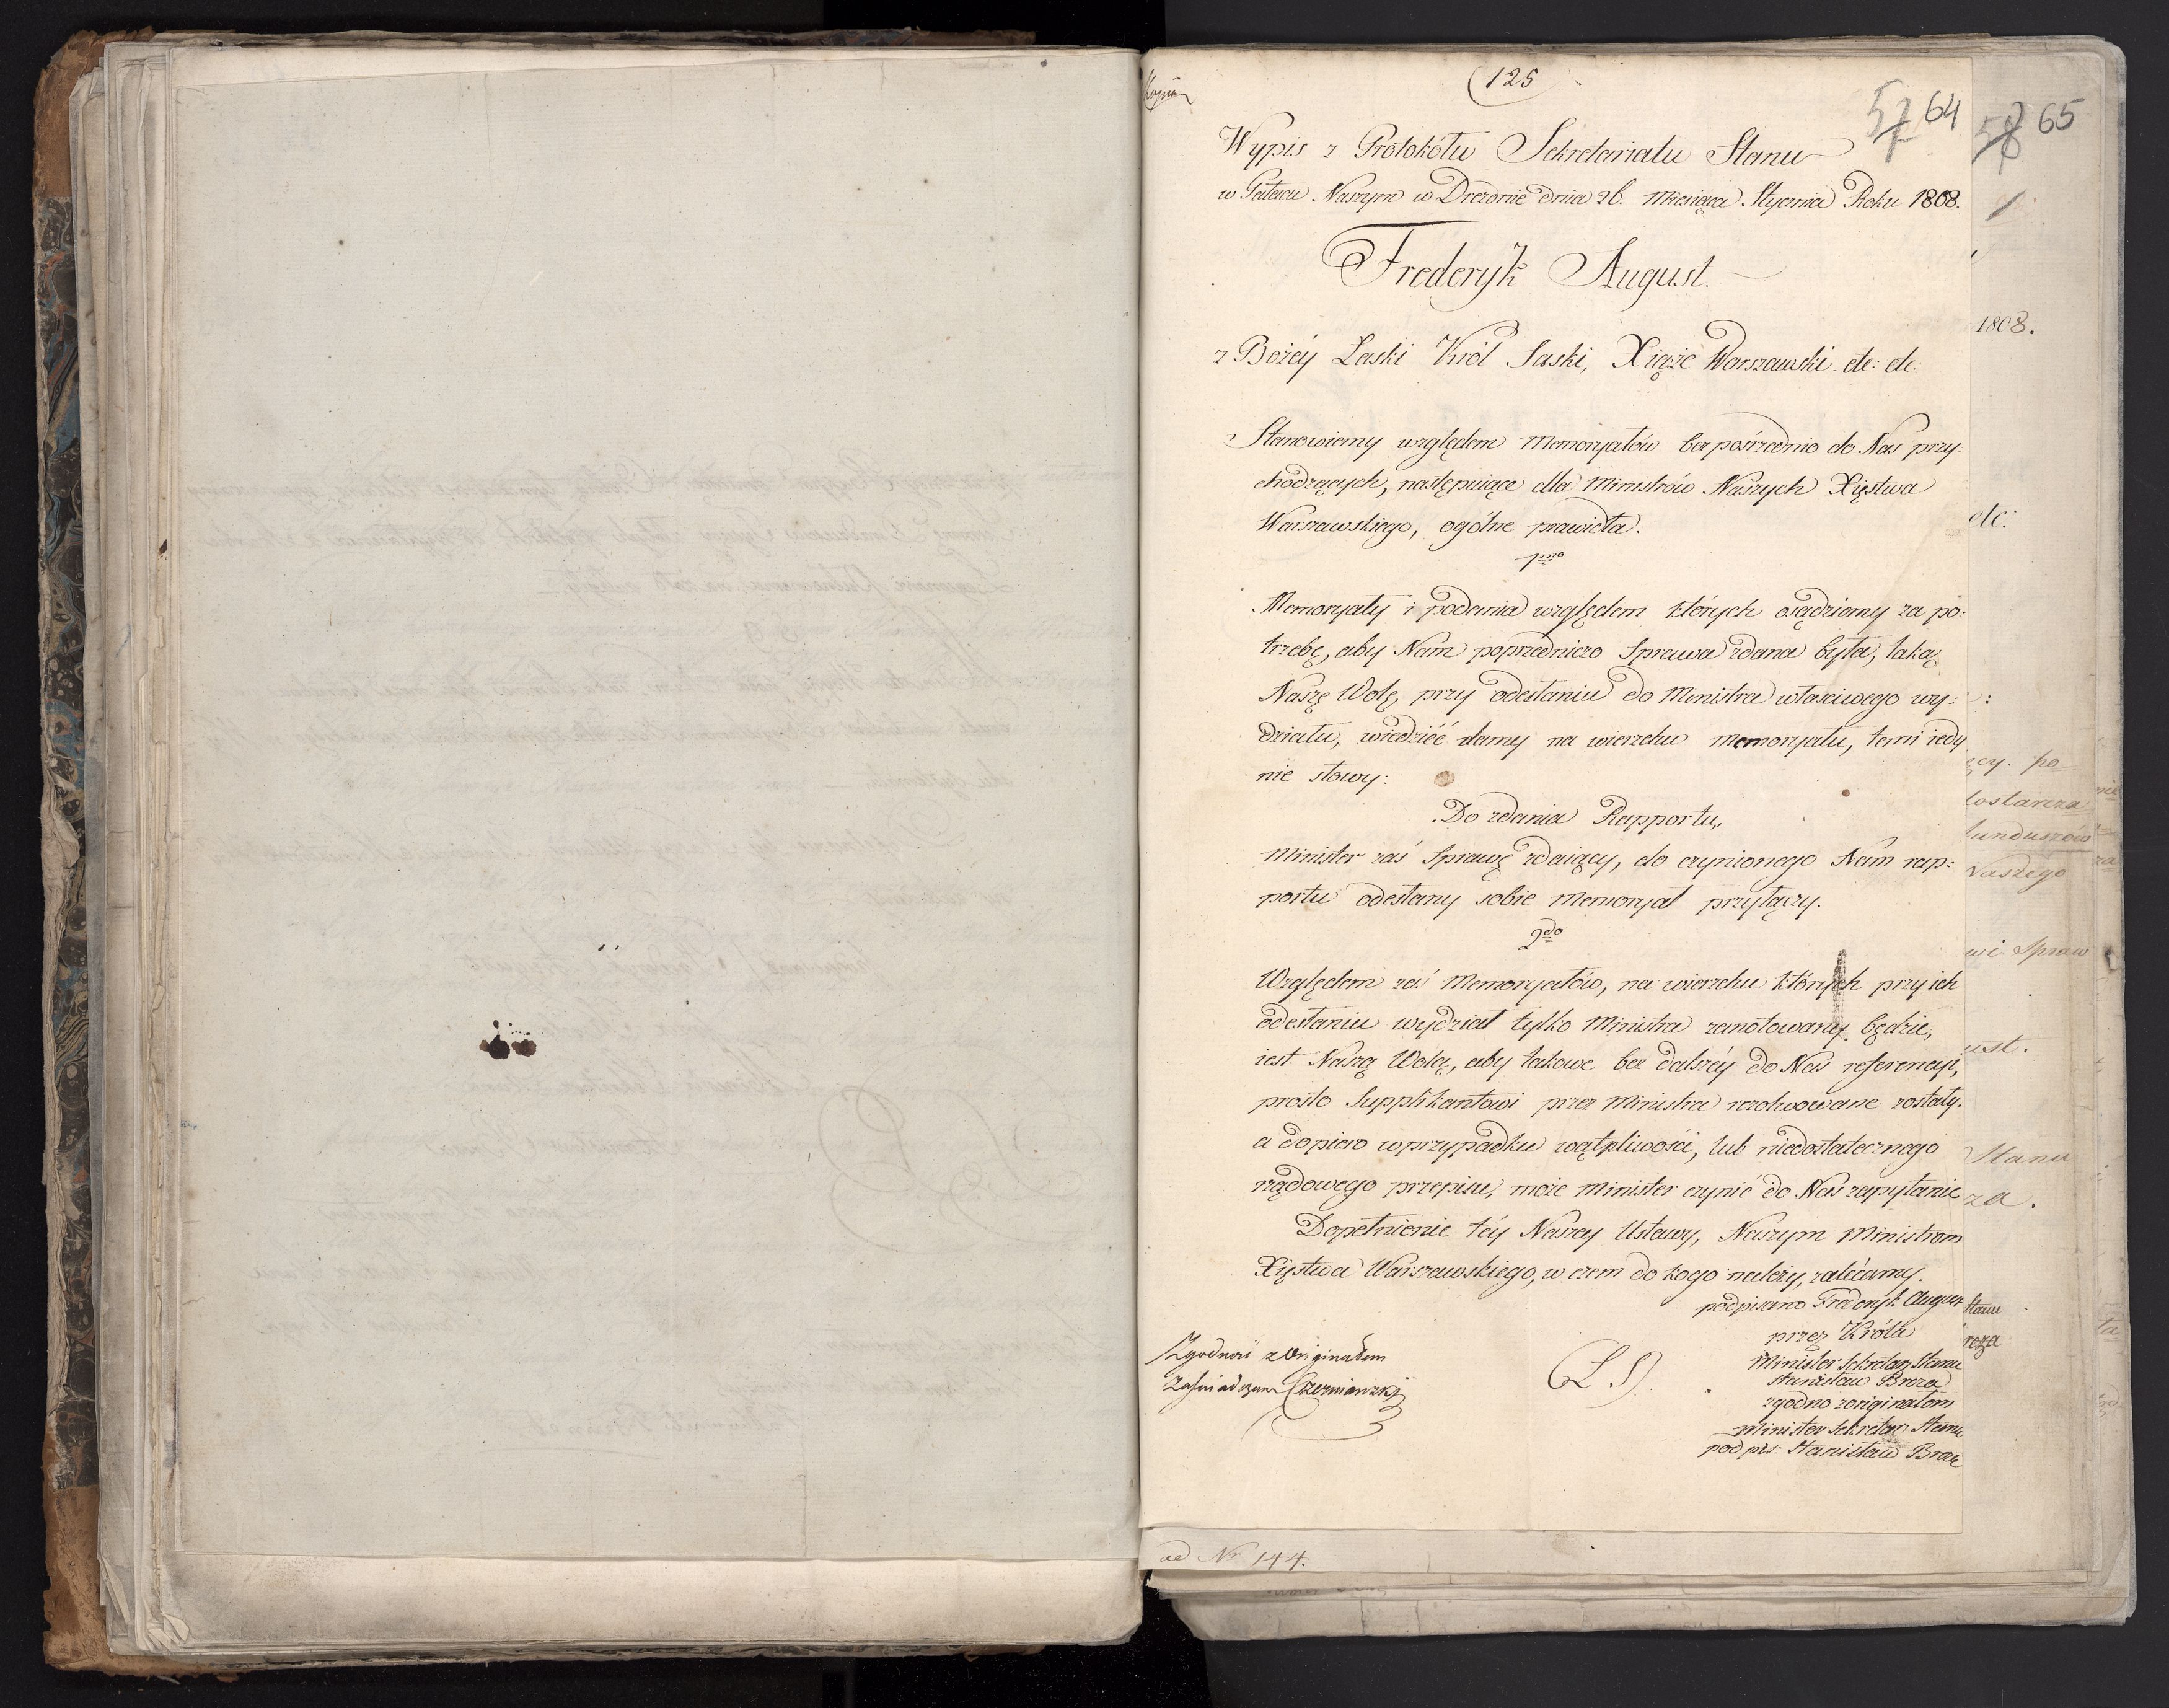 (125
57 64
Wypis z Protokółu Sekretariatu Stanu
w Pałacu Naszym w Dreznie dnia 26. Miesiąca Stycznia Roku 1808.
Frederyk August.
z Bożéy Łaski Król Saski, Xiąże Warszawski etc: etc:
Stanowiemy względem Memoryałów bezpośrzednio do Nas przy:
chodzących, następuiące dla Ministrów Naszych Xięstwa
Warszawskiego, ogólne prawidła.
1mo
Memoryały i podania względem których osądziemy za po:
trzebę, aby Nam poprzedniczo Sprawa zdana była, taką
Naszę Wolę, przy odesłaniu do Ministra właściwego wy:
działu, wiedziéć damy na wierzchu memoryału, temi iedy
nie słowy:
Do zdania Rapportu,
Minister zaś Sprawę zdaiący, do czynionego Nam rap:
portu odesłany sobie memoryał przyłączy.
2do
Względem zaś Memoryałów, na wierzchu których przy ich
odesłaniu wydział tylko Ministra zanotowany będzie,
iest Naszą Wolą, aby takowe bez dalszéy do Nas referencyi,
prosto Supplikantowi przez Ministra rezolwowane zostały.
a dopiero w przypadku wątpliwości, lub niedostatecznego
rządowego przepisu, może Minister czynić do Nas zapytanie
Dopełnienie téy Naszey Ustawy, Naszym Ministrom
Xięstwa Warszawskiego, w czem do kogo należy, zalécamy.
podpisano Frederyk August
przez Króla
Minister Sekretarz Stanu
Stanisław Breza
zgodno z originałem
Minister Sekretarz Stanu
podpis: Stanisław Breza
(L.S).
Zgodność z Originałem
Zaświadczam Czerniawski
ad Nr 144.
58 65
1808.
etc:
cy. po
dostarcza
funduszów
Naszego
wi Spraw
ust.
Stanu
za.
Stanu
reza